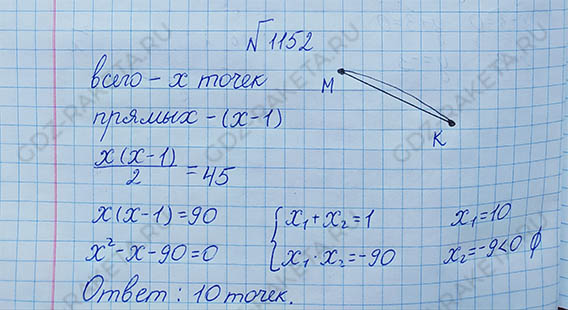 №1152
всего – x точек
M
прямых – (x-1)
K
x(x-1)/2 = 45
x(x-1)=90
x²-x-90=0
{ x₁+x₂=1
x₁·x₂=-90
x₁=10
x₂=-9<0 ∅
Ответ: 10 точек.
GDZ-RAKETA.RU